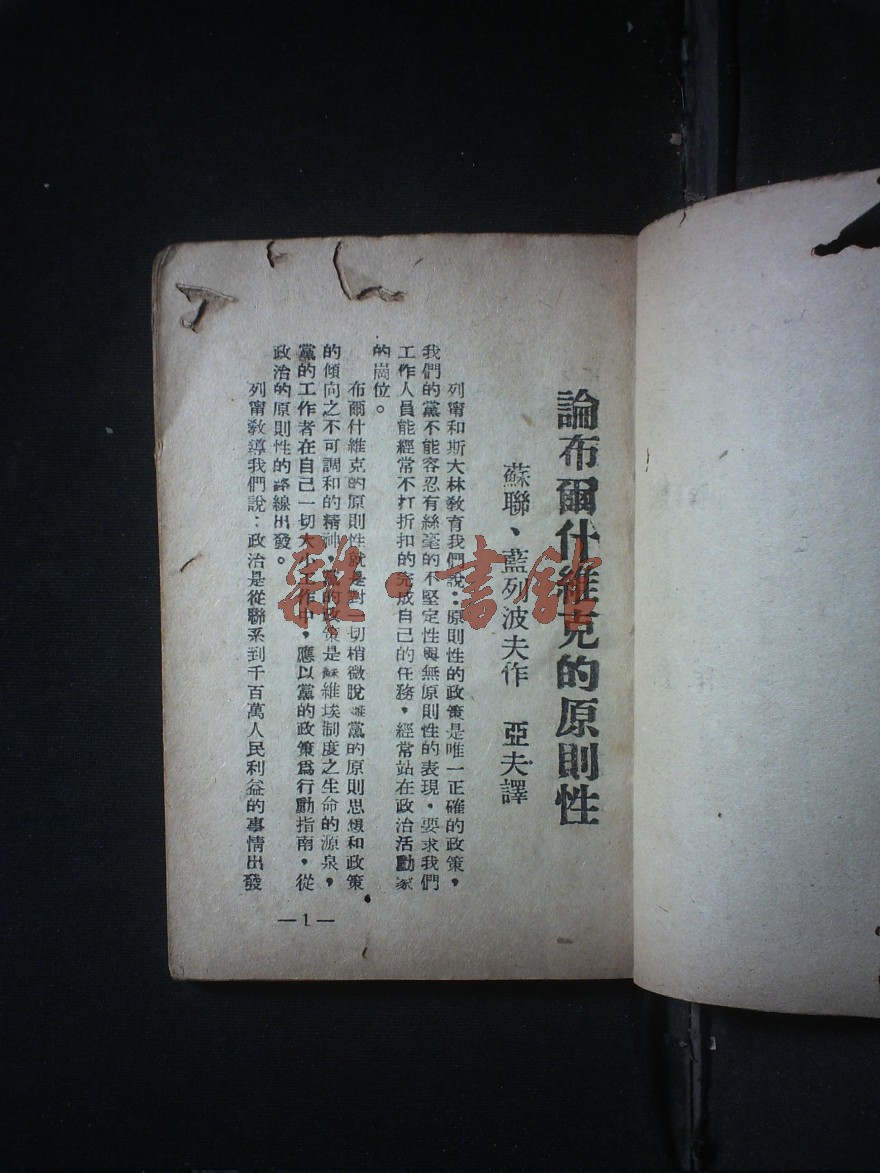 論布爾什維克的原則性
蘇聯、藍列波夫作　亞夫譯
列甯和斯大林教育我們說：原則性的政策是唯一正確的政策，
我們的黨不能容忍有絲毫的不堅定性與無原則性的表現，要求我們
工作人員能經常不打折扣的完成自己的任務，經常站在政治活動家
的崗位。
布爾什維克的原則性就是對一切稍微脫離黨的原則思想和政策
的傾向之不可調和的精神，黨的政策是蘇維埃制度之生命的源泉，
黨的工作者在自己一切大小工作中，應以黨的政策爲行動指南，從
政治的原則性的路線出發。
列甯敎導我們說：政治是從聯系到千百萬人民利益的事情出發
—1—
雜·書館